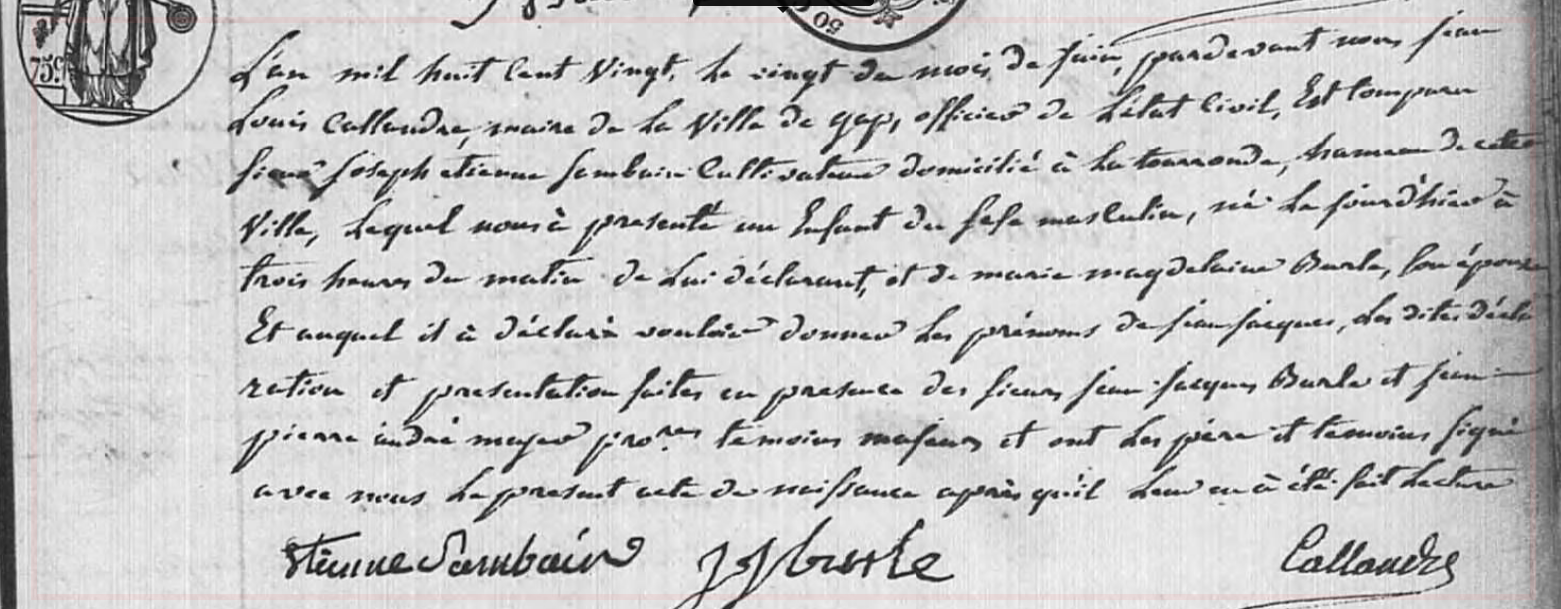 75c
50
L'an mil huit Cent Vingt, le vingt du mois de juin, pardevant nous jean
Louis Callandre, maire de la Ville de gap, officier de L'état Civil, Est Comparu
sieur joseph etienne sambain Cultivateur domicilié à la tourronde, hameau de cette
Ville, lequel nous à presenté un Enfant du sexe masculin, né le jour d'hier à
trois heures du matin de Lui déclarant, et de marie magdelaine Burle, son épouse
Et auquel il à déclaré vouloir donner les prénoms de jean jacques, les dites décla
ration et presentation faites en presence des sieurs jean-jacques Burle et jean
pierre andré mayer pro.res temoins majeurs et ont les père et temoins signé
avec nous le present acte de naissance après qu'il leur en à été fait lecture
Etienne Sambain JJ burle Callandre